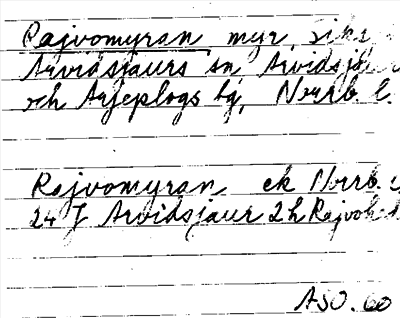 Rajvomyran myr, siks
Arvidsjaurs sn, Arvidsj
och Arjeplogs tg, Norrb. l.
Rajvomyran ek Norrb
24 J Arvidsjaur 2 h Rajvo
ASO. 60